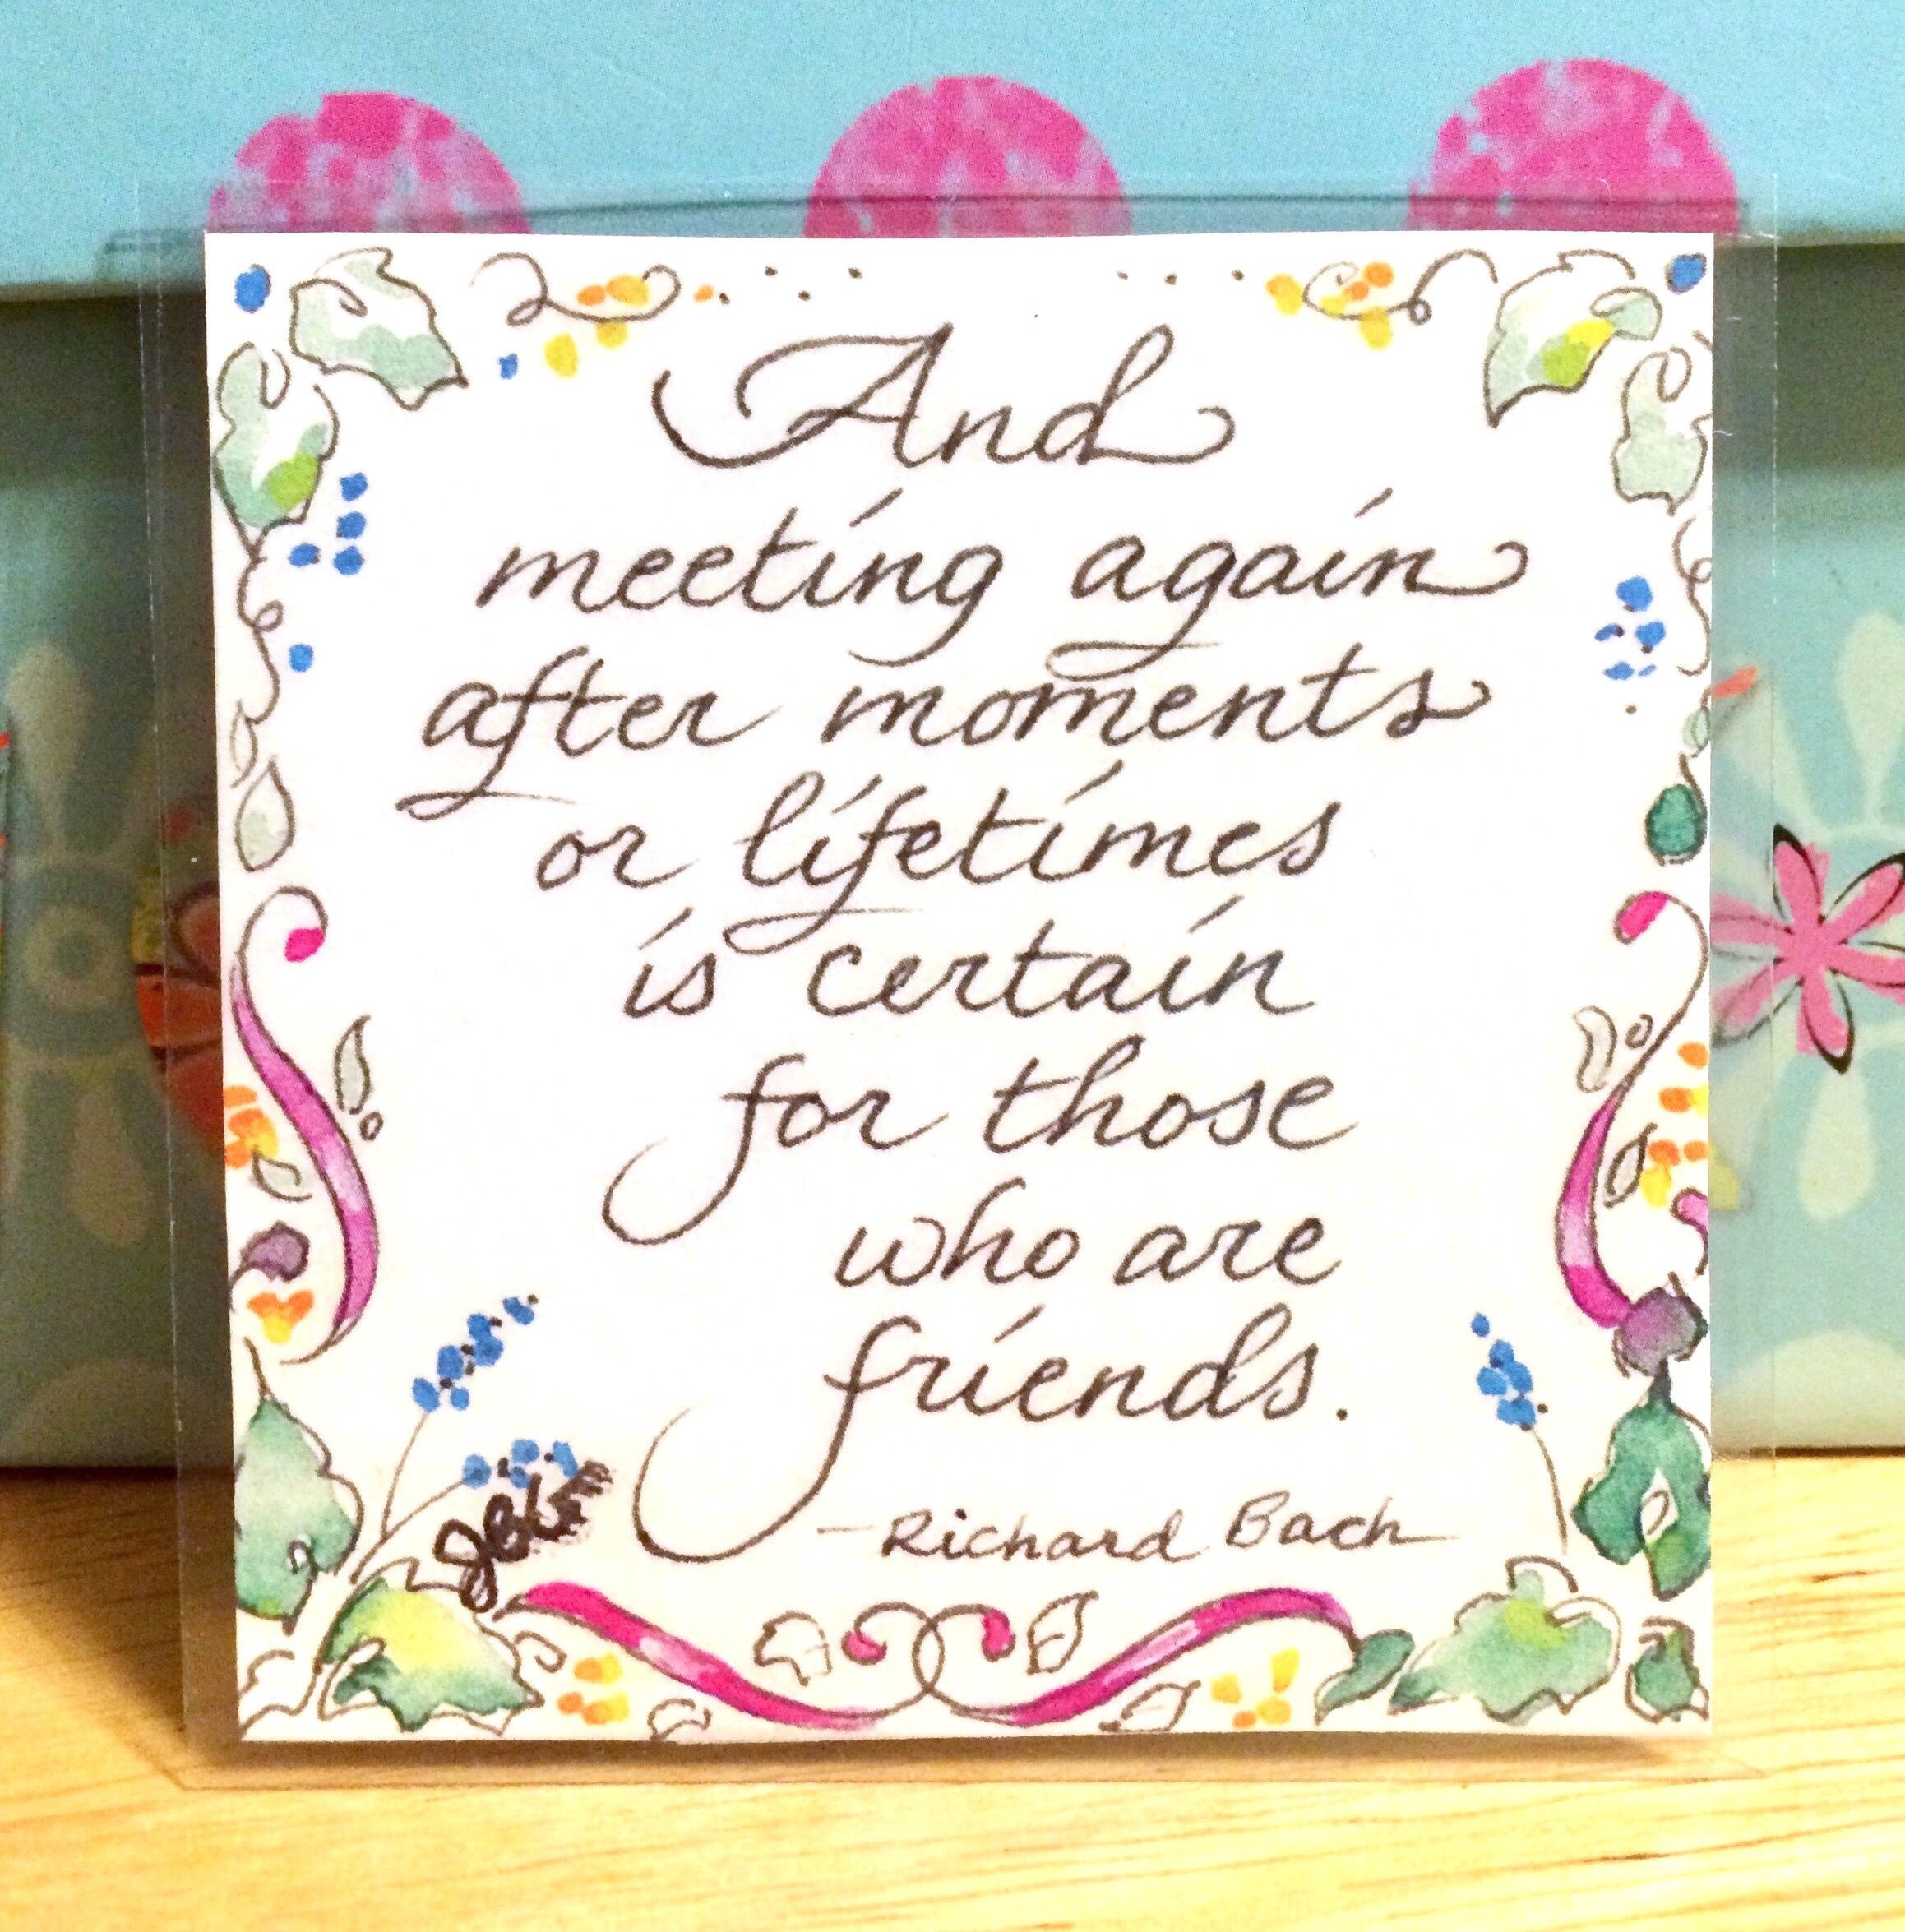 And
meeting again
after moments
or lifetimes
is certain
for those
who are
friends.
—Richard Bach